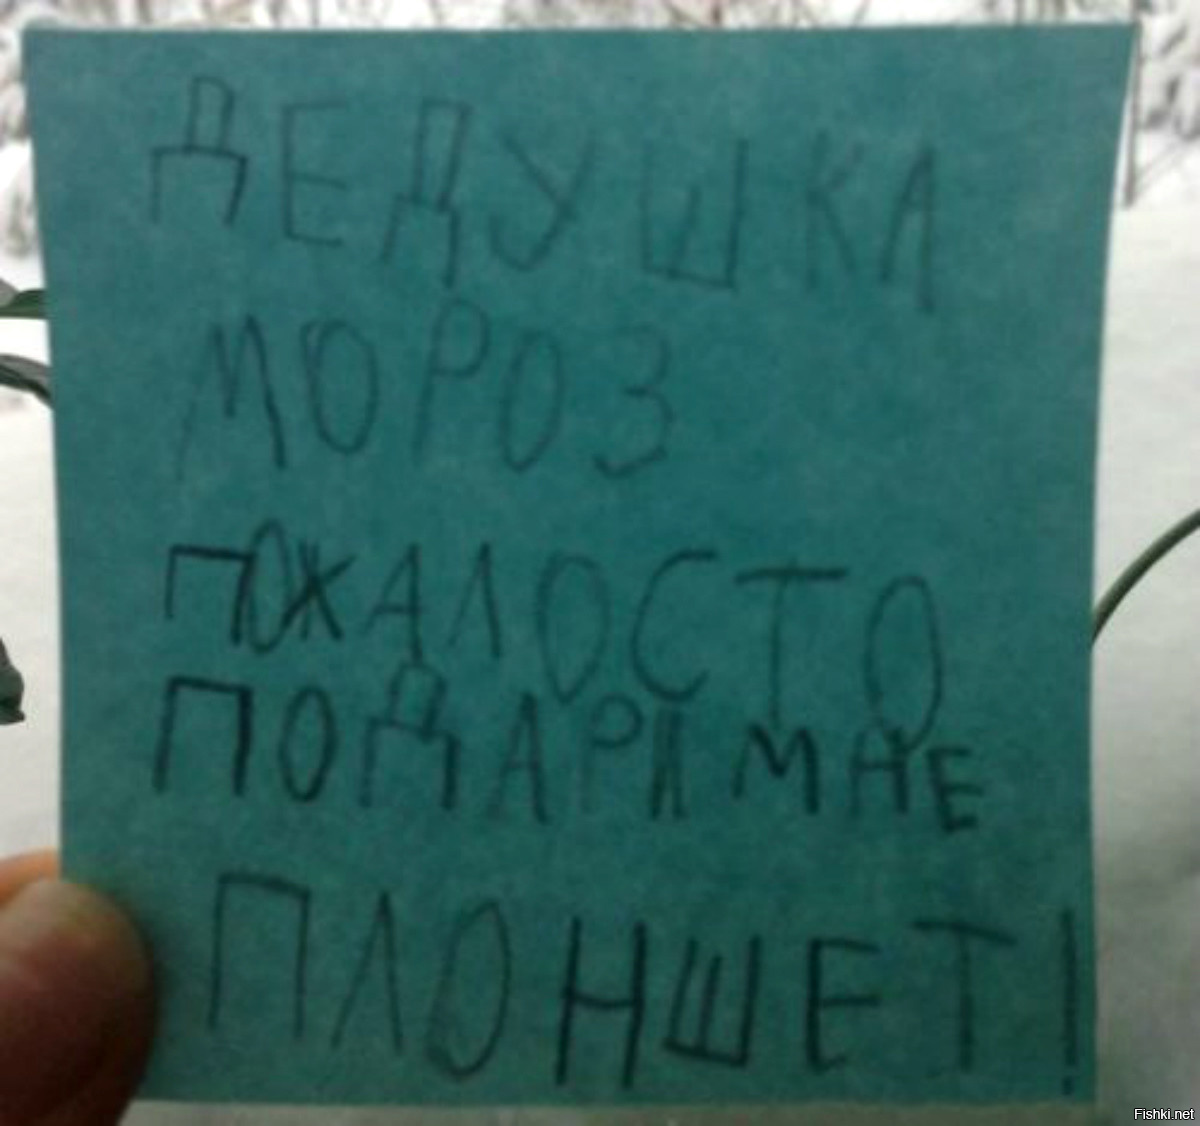 ДЕДУШКА
МОРОЗ
ПОЖАЛОСТО
ПОДАРИ МНЕ
ПЛОНШЕТ!
Fishki.net